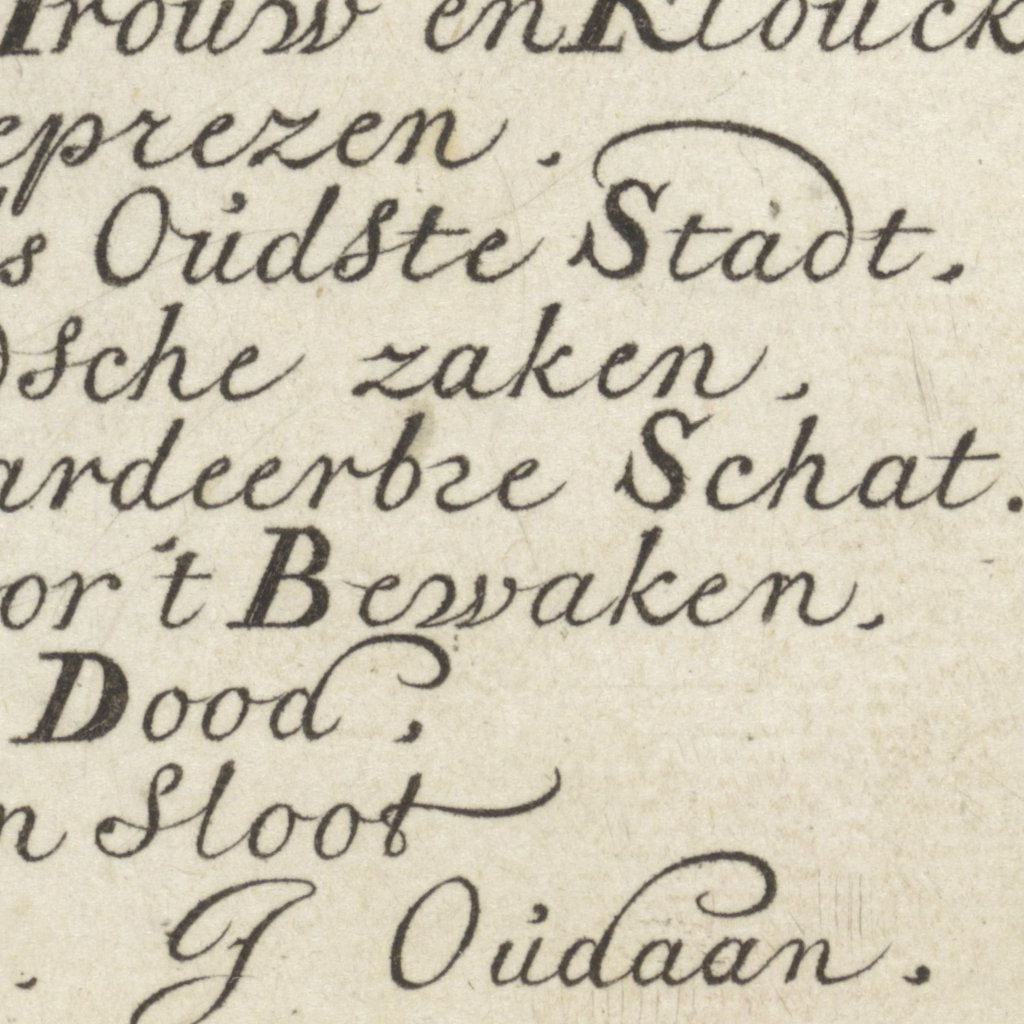 Trouw en Klouck
eprezen .
s Oudste Stadt .
dsche zaken ,
ardeerbre Schat .
or 't Bewaken ,
Dood ,
n Sloot
. J Oudaan .